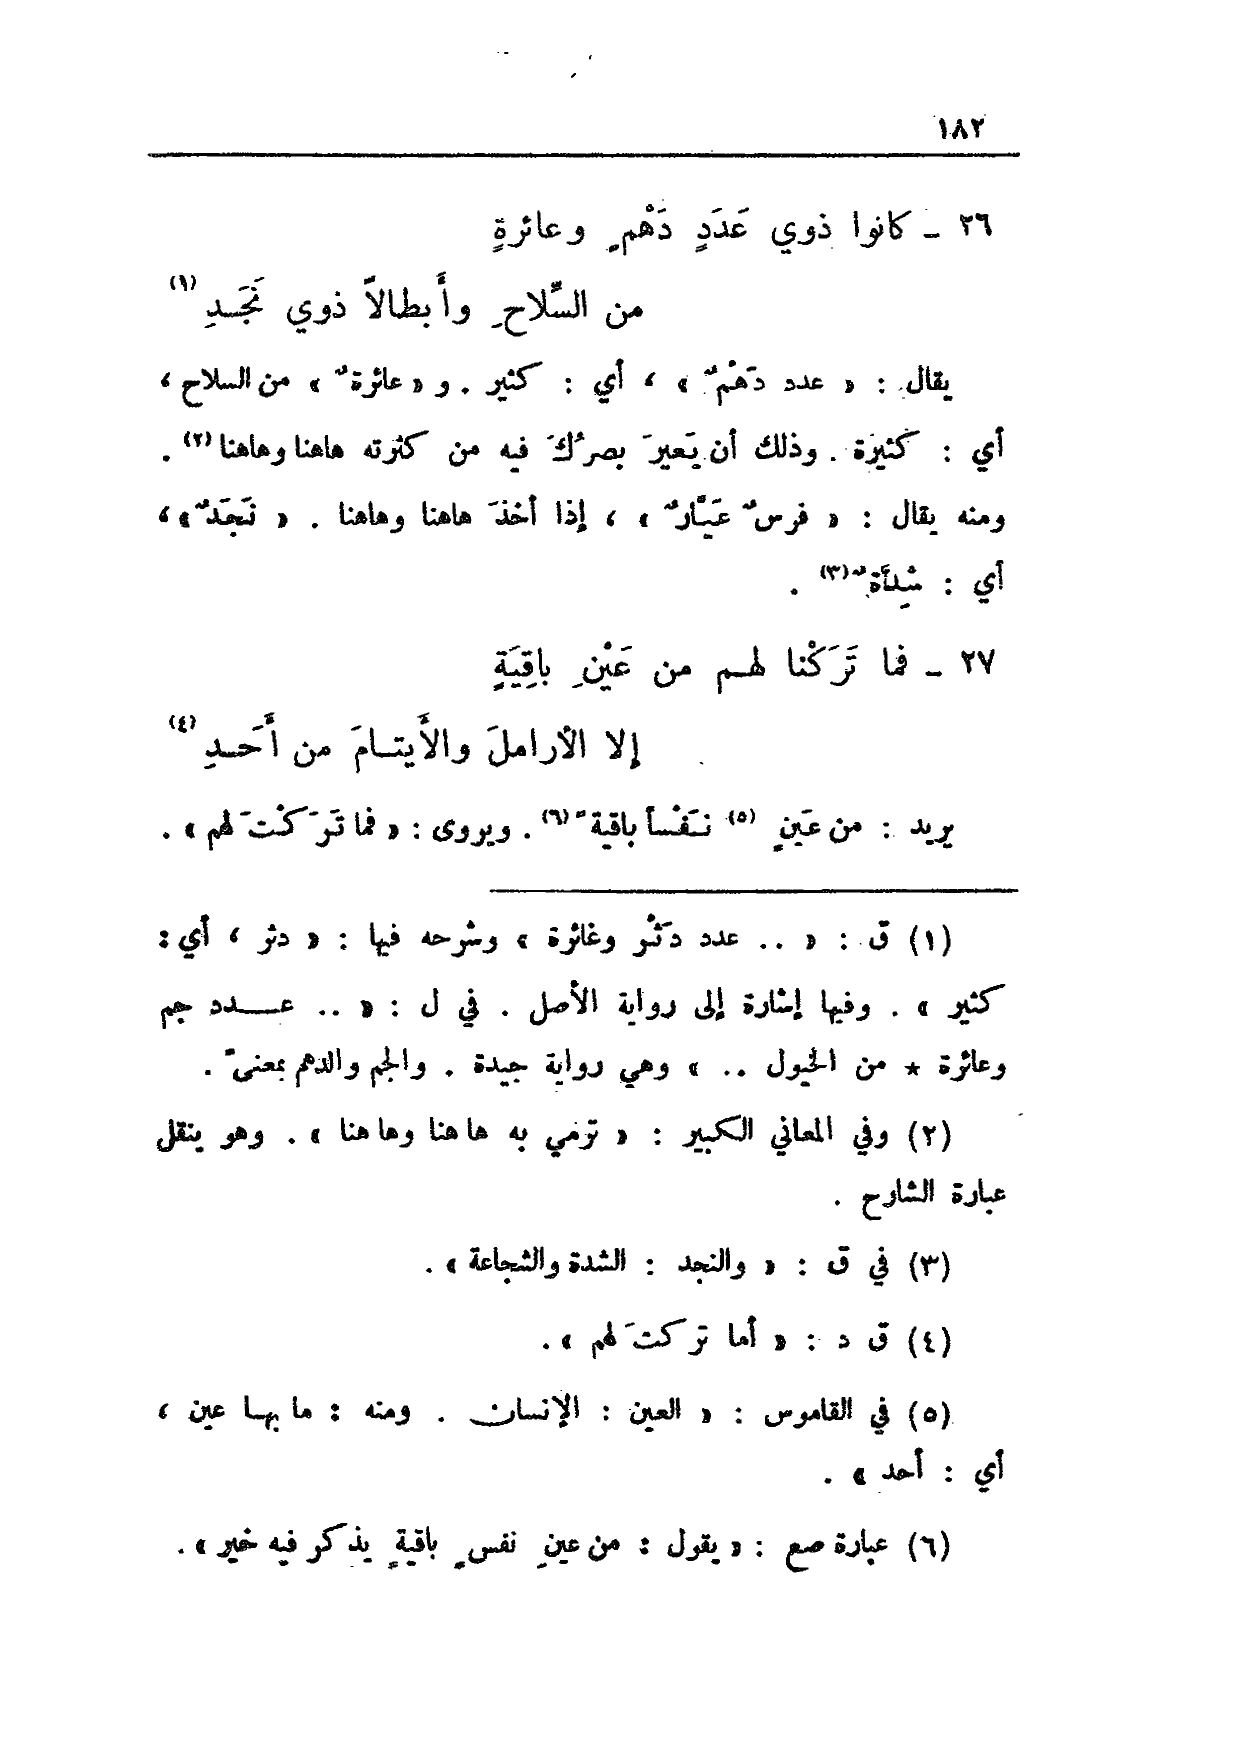 ١٨٢
٢٦ ـ كانوا ذوي عَدَدٍ دَهْمٍ وعائرةٍ
من السِّلاحِ وأَبطالاً ذوي نَجَدِ (١)
يقال : « عدد دَهْمٌ » ، أي : كثير . و « عائرةٌ » من السلاح ،
أي : كثيرة . وذلك أن يَعيرَ بصرُكَ فيه من كثرته هاهنا وهاهنا (٢) .
ومنه يقال : « فرسٌ عَيَّارٌ » ، إذا أخذَ هاهنا وهاهنا . « نَجَدٌ » ،
أي : شِدَّةٌ (٣) .
٢٧ ـ فما تَرَكْنا لهم من عَيْنِ باقِيَةٍ
إلا الأراملَ والأَيتامَ من أَحَدِ (٤)
يريد : من عَينٍ (٥) نَفْساً باقيةً (٦) . ويروى : « فما تَرَكْتَ لهم » .
(١) ق : « .. عدد دَثْرٍ وغائرة » وشرحه فيها : « دثر ، أي :
كثير » . وفيها إشارة إلى رواية الأصل . في ل : « .. عدد جم
وعائرة * من الخيول .. » وهي رواية جيدة . والجم والدهم بمعنىً .
(٢) وفي المعاني الكبير : « ترمي به هاهنا وهاهنا » . وهو ينقل
عبارة الشارح .
(٣) في ق : « والنجد : الشدة والشجاعة » .
(٤) ق د : « أما تركتَ لهم » .
(٥) في القاموس : « العين : الإنسان . ومنه : ما بها عين ،
أي : أحد » .
(٦) عبارة صع : « يقول : من عينِ نفسٍ باقيةٍ يذكر فيه خير » .